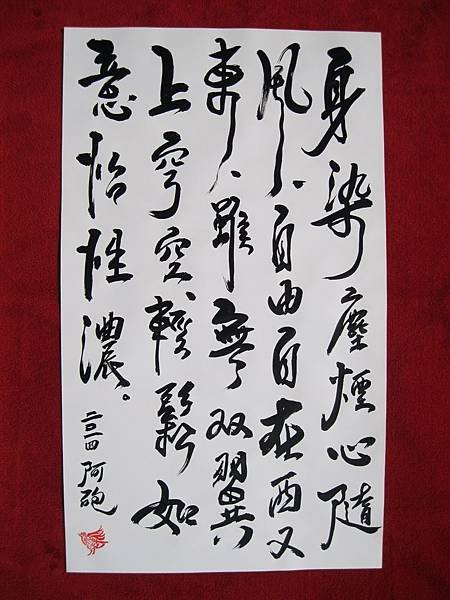 身染塵煙心隨
風、自由自在西又
東、雖無双翼
上穹空、輕鬆如
意怡性濃。
二〇一四 阿砲